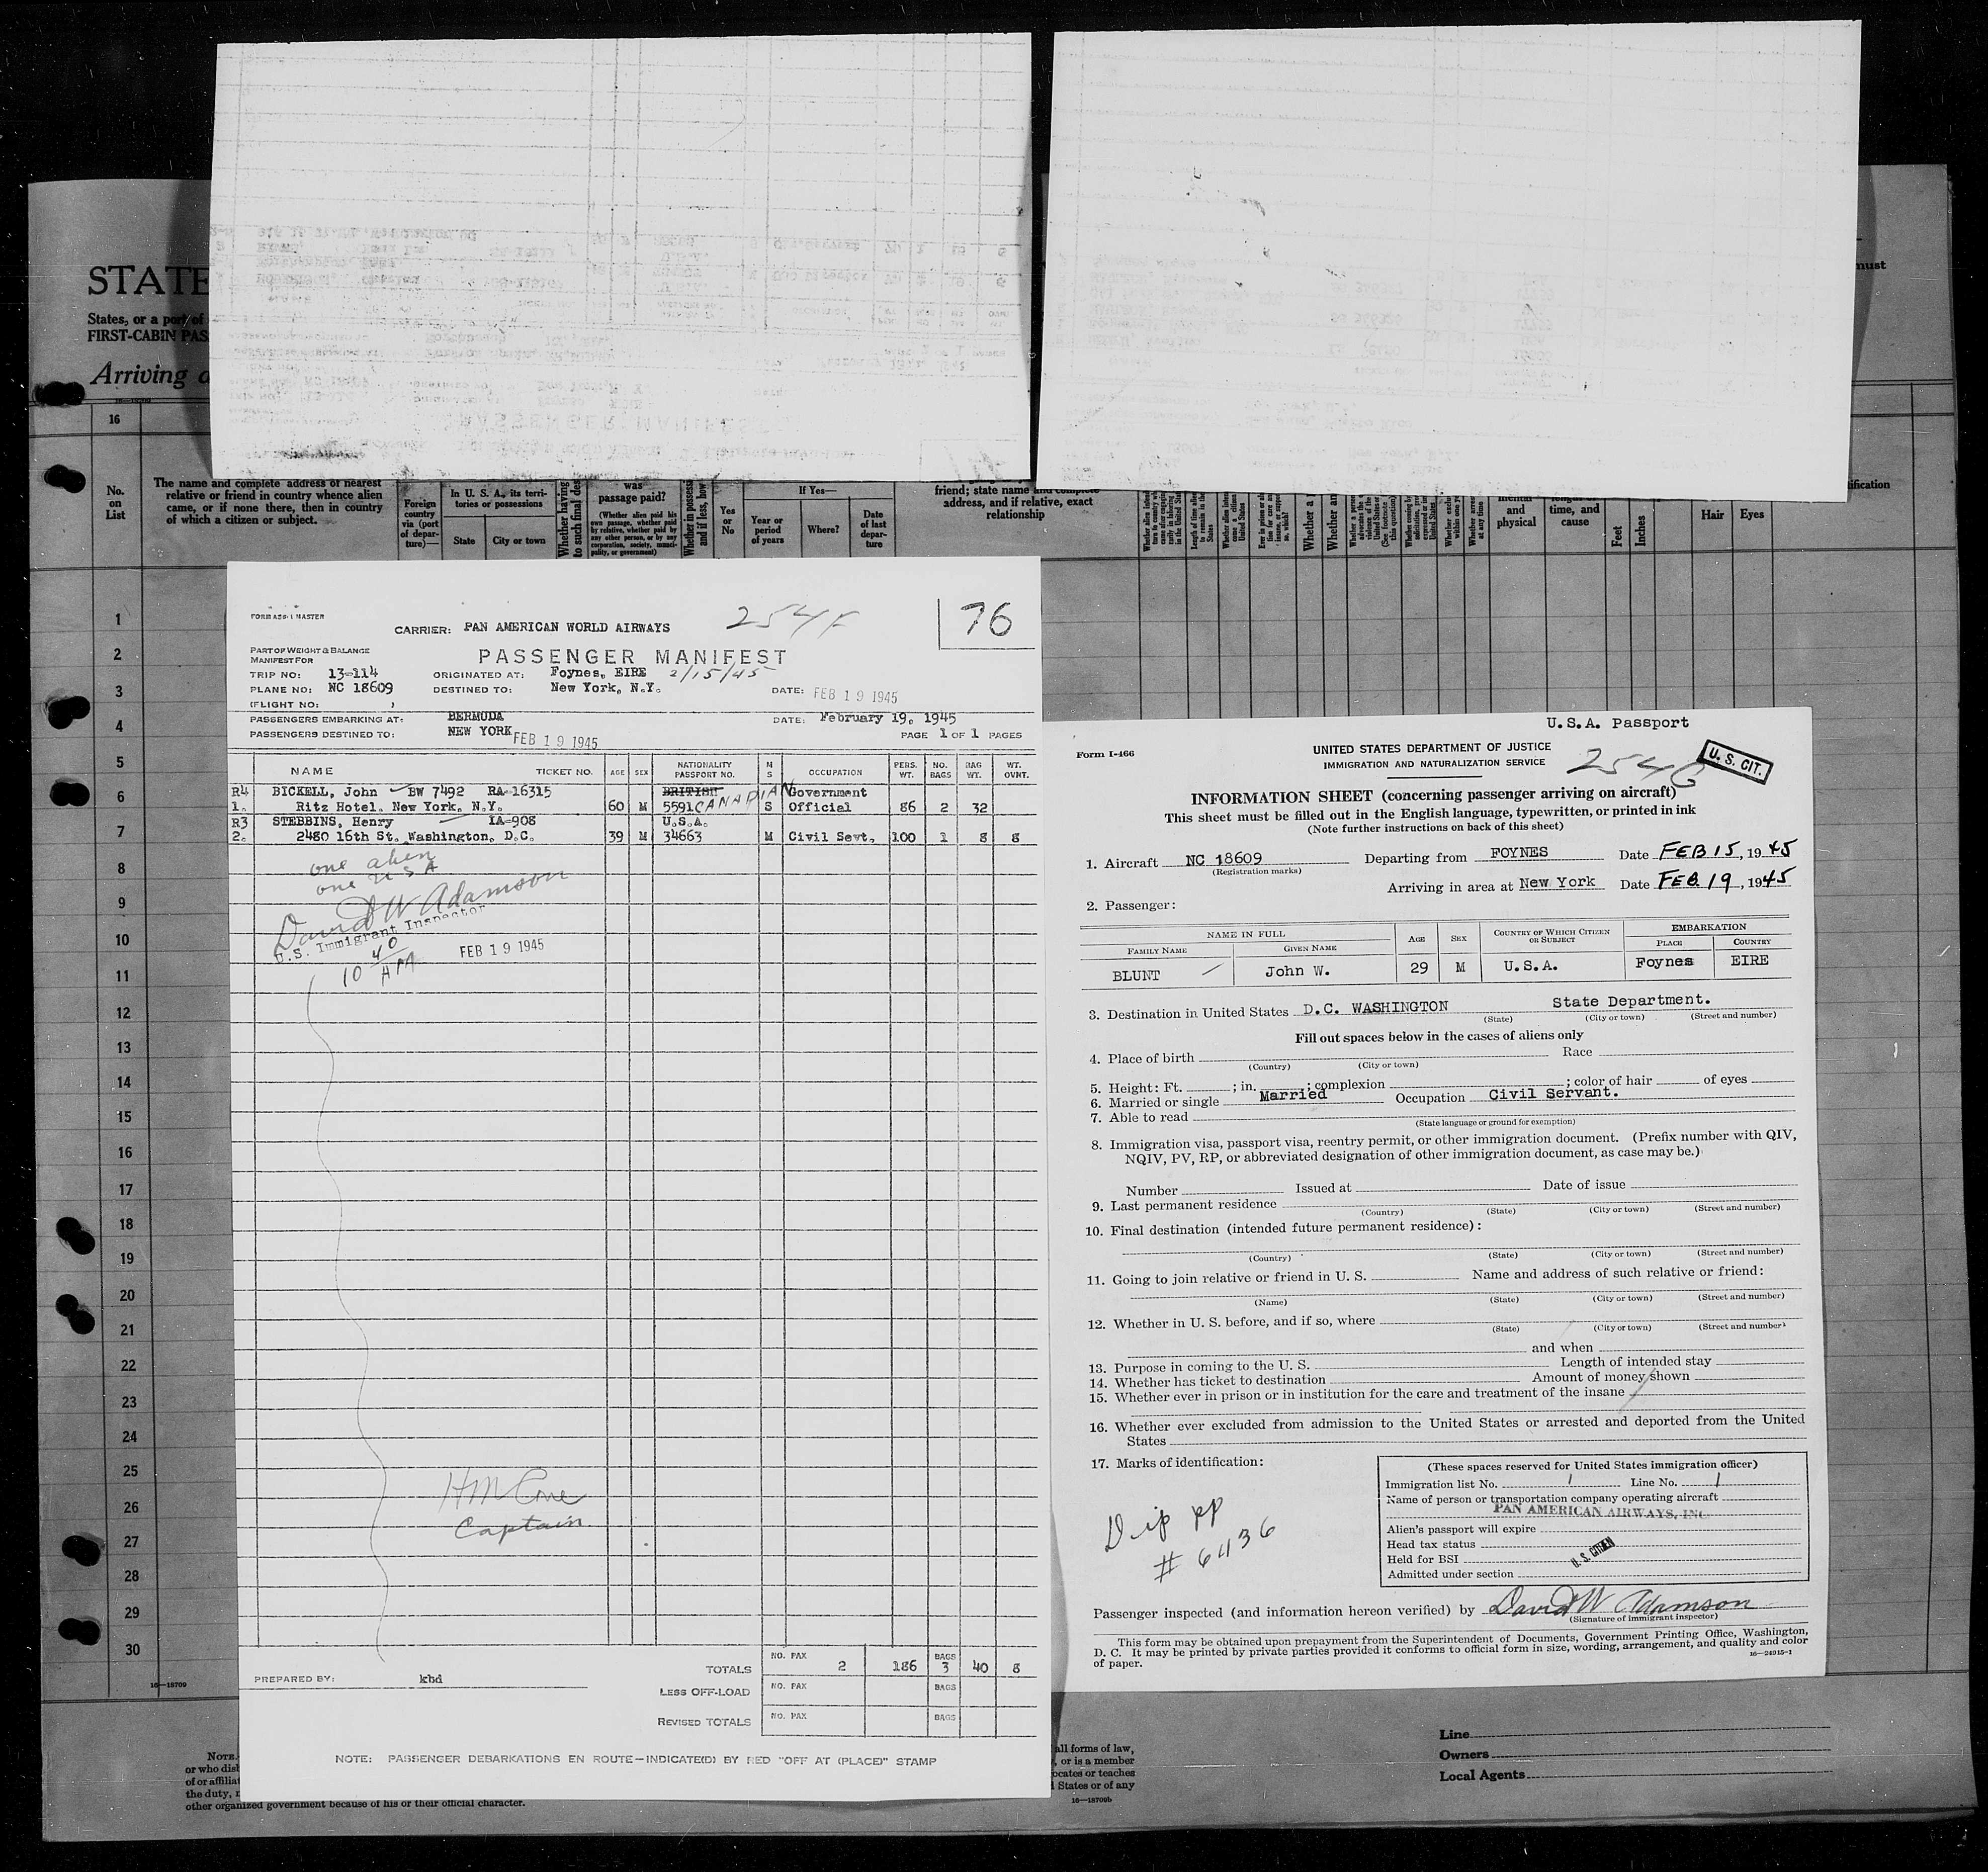 STATE
States, or a port of
FIRST-CABIN PAS
Arriving a
must
16
No. on List
The name and complete address of nearest relative or friend in country whence alien came, or if none there, then in country of which a citizen or subject.
Foreign country via (port of departure)—
In U. S. A., its territories or possessions
State
City or town
Whether having
to such final des
was passage paid?
(Whether alien paid his own passage, whether paid by relative, whether paid by any other person, or by any corporation, society, municipality, or government)
Whether in possess
and if less, how
Yes or No
If Yes—
Year or period of years
Where?
Date of last departure
friend; state name and complete address, and if relative, exact relationship
Whether a
Whether an
mental and physical
time, and cause
Feet
Inches
Hair
Eyes
ification
1
2
3
4
5
6
7
8
9
10
11
12
13
14
15
16
17
18
19
20
21
22
23
24
25
26
27
28
29
30
16—18709
FORM ASG-1 MASTER
CARRIER: PAN AMERICAN WORLD AIRWAYS
254F
76
PART OF WEIGHT & BALANCE
MANIFEST FOR
PASSENGER MANIFEST
TRIP NO: 13-114
ORIGINATED AT: Foynes, EIRE 2/15/45
PLANE NO: NC 18609
DESTINED TO: New York, N.Y.
DATE: FEB 19 1945
(FLIGHT NO: )
PASSENGERS EMBARKING AT: BERMUDA
DATE: February 19, 1945
PASSENGERS DESTINED TO: NEW YORK FEB 19 1945
PAGE 1 OF 1 PAGES
NAME TICKET NO. AGE SEX NATIONALITY PASSPORT NO. M S OCCUPATION PERS. WT. NO. BAGS BAG WT. WT. OVNT.
R4 BICKELL, John BW 7492 RA-16315 BRITISH Government
1. Ritz Hotel. New York, N.Y. 60 M 5591 CANADIAN S Official 86 2 32
R3 STEBBINS, Henry IA-908 U.S.A.
2. 2480 16th St. Washington, D.C. 39 M 34663 M Civil Sevt. 100 1 8 8
one alien
one USA
David W Adamson
U.S. Immigrant Inspector
10 40 AM
FEB 19 1945
Captain
NO. PAX BAGS
TOTALS 2 186 3 40 8
PREPARED BY: kbd
LESS OFF-LOAD NO. PAX BAGS
REVISED TOTALS NO. PAX BAGS
NOTE: PASSENGER DEBARKATIONS EN ROUTE—INDICATE(D) BY RED "OFF AT (PLACE)" STAMP
U.S.A. Passport
Form I-466
UNITED STATES DEPARTMENT OF JUSTICE
IMMIGRATION AND NATURALIZATION SERVICE
254G
U. S. CIT.
INFORMATION SHEET (concerning passenger arriving on aircraft)
This sheet must be filled out in the English language, typewritten, or printed in ink
(Note further instructions on back of this sheet)
1. Aircraft NC 18609 Departing from FOYNES Date FEB 15, 1945
(Registration marks)
Arriving in area at New York Date FEB. 19, 1945
2. Passenger:
NAME IN FULL
FAMILY NAME
GIVEN NAME
AGE
SEX
COUNTRY OF WHICH CITIZEN OR SUBJECT
EMBARKATION
PLACE
COUNTRY
BLUNT John W. 29 M U.S.A. Foynes EIRE
3. Destination in United States D.C. WASHINGTON State Department.
(State) (City or town) (Street and number)
Fill out spaces below in the cases of aliens only
4. Place of birth Race
(Country) (City or town)
5. Height: Ft. ; in. ; complexion ; color of hair of eyes
6. Married or single Married Occupation Civil Servant.
7. Able to read
(State language or ground for exemption)
8. Immigration visa, passport visa, reentry permit, or other immigration document. (Prefix number with QIV,
NQIV, PV, RP, or abbreviated designation of other immigration document, as case may be.)
Number Issued at Date of issue
9. Last permanent residence
(Country) (State) (City or town) (Street and number)
10. Final destination (intended future permanent residence):
(Country) (State) (City or town) (Street and number)
11. Going to join relative or friend in U. S. Name and address of such relative or friend:
(Name) (State) (City or town) (Street and number)
12. Whether in U. S. before, and if so, where
(State) (City or town) (Street and number)
and when
13. Purpose in coming to the U. S. Length of intended stay
14. Whether has ticket to destination Amount of money shown
15. Whether ever in prison or in institution for the care and treatment of the insane
16. Whether ever excluded from admission to the United States or arrested and deported from the United
States
17. Marks of identification:
Dip pp
# 6436
(These spaces reserved for United States immigration officer)
Immigration list No. 1 Line No. 1
Name of person or transportation company operating aircraft
PAN AMERICAN AIRWAYS, INC.
Alien's passport will expire
Head tax status
Held for BSI
U. S. CITIZEN
Admitted under section
Passenger inspected (and information hereon verified) by David W Adamson
(Signature of immigrant inspector)
This form may be obtained upon prepayment from the Superintendent of Documents, Government Printing Office, Washington,
D. C. It may be printed by private parties provided it conforms to official form in size, wording, arrangement, and quality and color
of paper.
16—24915-1
NOTE.
or who dis
of or affiliat
the duty,
other organized government because of his or their official character.
all forms of law,
, or is a member
ocates or teaches
States or of any
16—18709b
Line
Owners
Local Agents